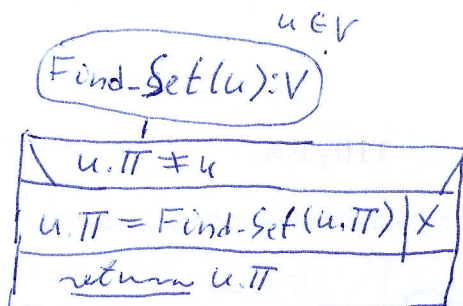 u ∈ V
Find-Set(u):V
u.π ≠ u
u.π = Find-Set(u.π) | X
return u.π